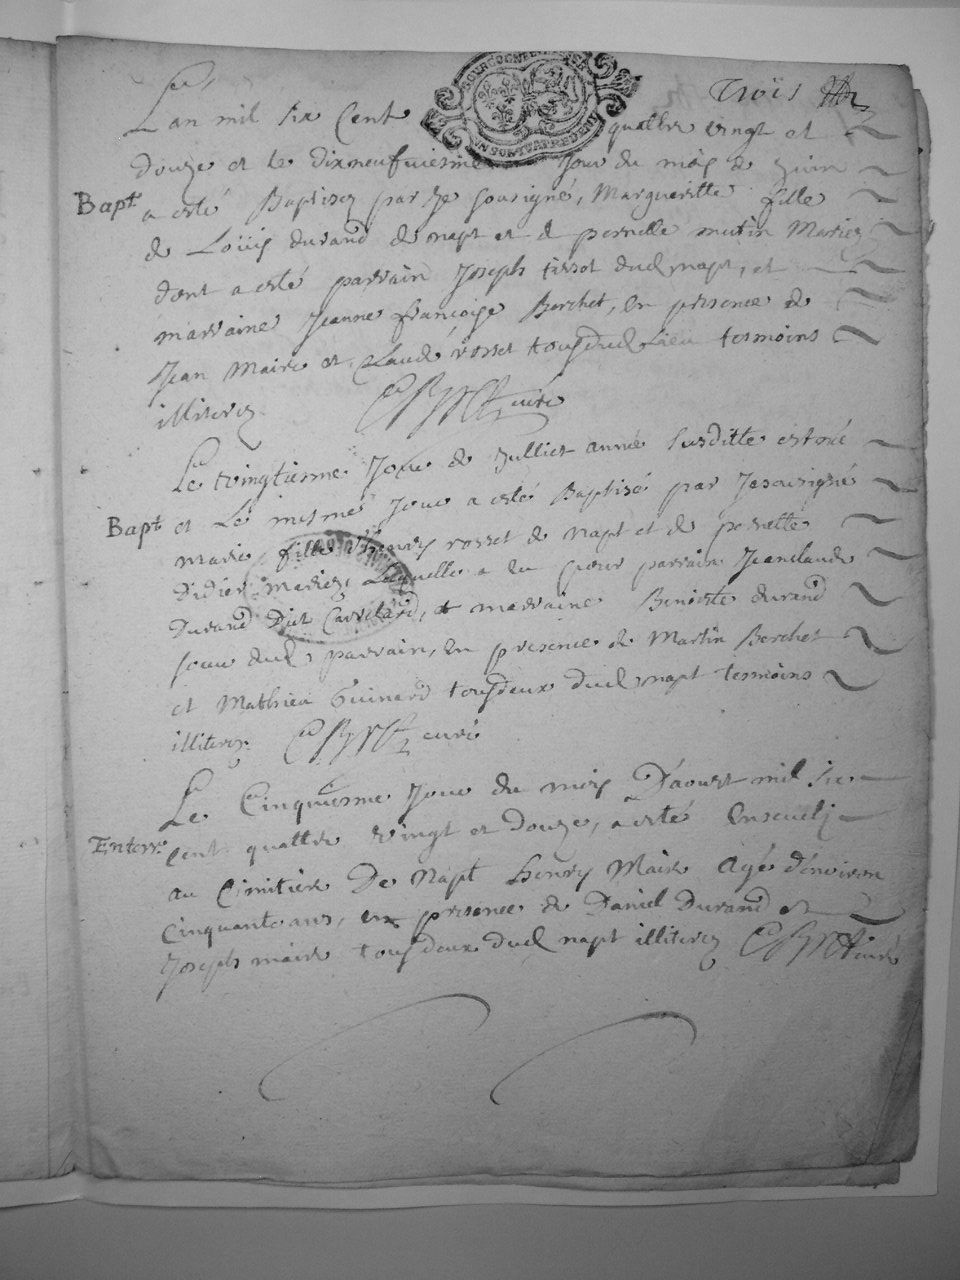 Trois
L'an mil six Cent quattre vingt et
douze et le dixneufviesme Jour du mois de Juin
Bapt. a esté Baptisez par Je sousigné, Margueritte fille
de Loüis durand de napt et de pernette mutin Mariez
dont a esté parrain Joseph tissot dud napt, et
marraine Jeanne françoise Berchet, En presence de
Jean Maire et Claude rosset tousdud Lieu tesmoins
illiterez curé
Le vingtiesme Jour de Julliet année susditte est né
Bapt. et Le mesme Jour a esté Baptisé par Je sousigné
marie fille d'henry rosset de Napt et de pernette
Didier Mariez, Laquelle a eu pour parrain Jeanclaude
Durand Dict Cavelard, et marraine Benoiste durand
soeur dud parrain, en presence de Martin Berchet
et Mathieu Guinard tousdeux dud napt tesmoins
illiterez curé
Le Cinquiesme Jour du mois D'aoust mil six
Enterr. Cent quattre vingt et douze, a esté Enseveli
au Cimitiere De Napt Henry Maire Agé d'environ
Cinquante ans, en presence de Daniel Durand et
Joseph maire tousdeux dud napt illiterez curé